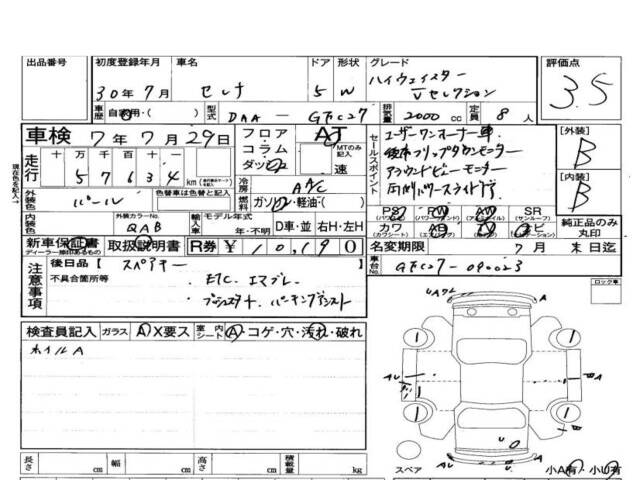 出品番号
初度登録年月
30年7月
車名
セレナ
ドア
5
形状
W
グレード
ハイウェイスター
Vセレクション
評価点
3.5
車歴
自家用・( )
型式
DAA－GFC27
排気量
2000 cc
定員
8人
車検
7年7月29日
フロア
コラム
ダッシュ
AT
MTのみ記入
速
セールスポイント
ユーザーワンオーナー車
後席フリップダウンモニター
アラウンドビューモニター
両側パワースライドドア
[外装]
B
[内装]
B
走行
十万千百十一
57634
km
現在色を記入→
外装色
パール
色替車は色替と記入
冷房
AAC
燃料
ガソリン・軽油・( )
PS (パワーステアリング)
PW (パワーウィンドウ)
AW (アルミホイール)
SR (サンルーフ)
カワ (カワシート)
AB (エアバッグ)
TV (テレビ)
ナビ (ナビゲーション)
純正品のみ丸印
内装色
外装カラーNo.
QAB
輸入車
モデル年式
年・不明
D車・並 右H・左H
新車保証書
ディーラー捺印あるもの
取扱説明書
R券 ¥10,190
名変期限
7月末日迄
注意事項
後日品【 スペアキー
不具合箇所等
ETC. エマブレ.
プッシュスタート. パーキングアシスト
車台No.
GFC27-090023
ロック車
検査員記入
ガラス A・X要ス
室内シート A・コゲ・穴・汚れ・破れ
ホイルA
長さ cm
幅 cm
高さ cm
積載量 kg
スペア
小A有・小U有